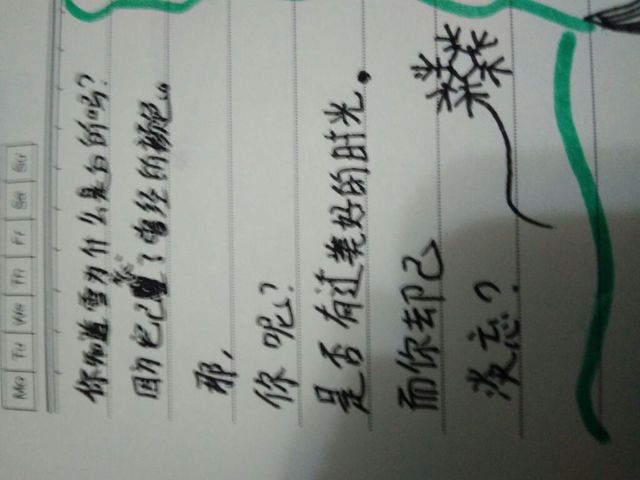 Mo Tu We Th Fr Sa Su
你知道雪为什么是白的吗?
因为它已忘了曾经的颜色。
那,
你呢?
是否有过美好的时光。
而你却已
淡忘?